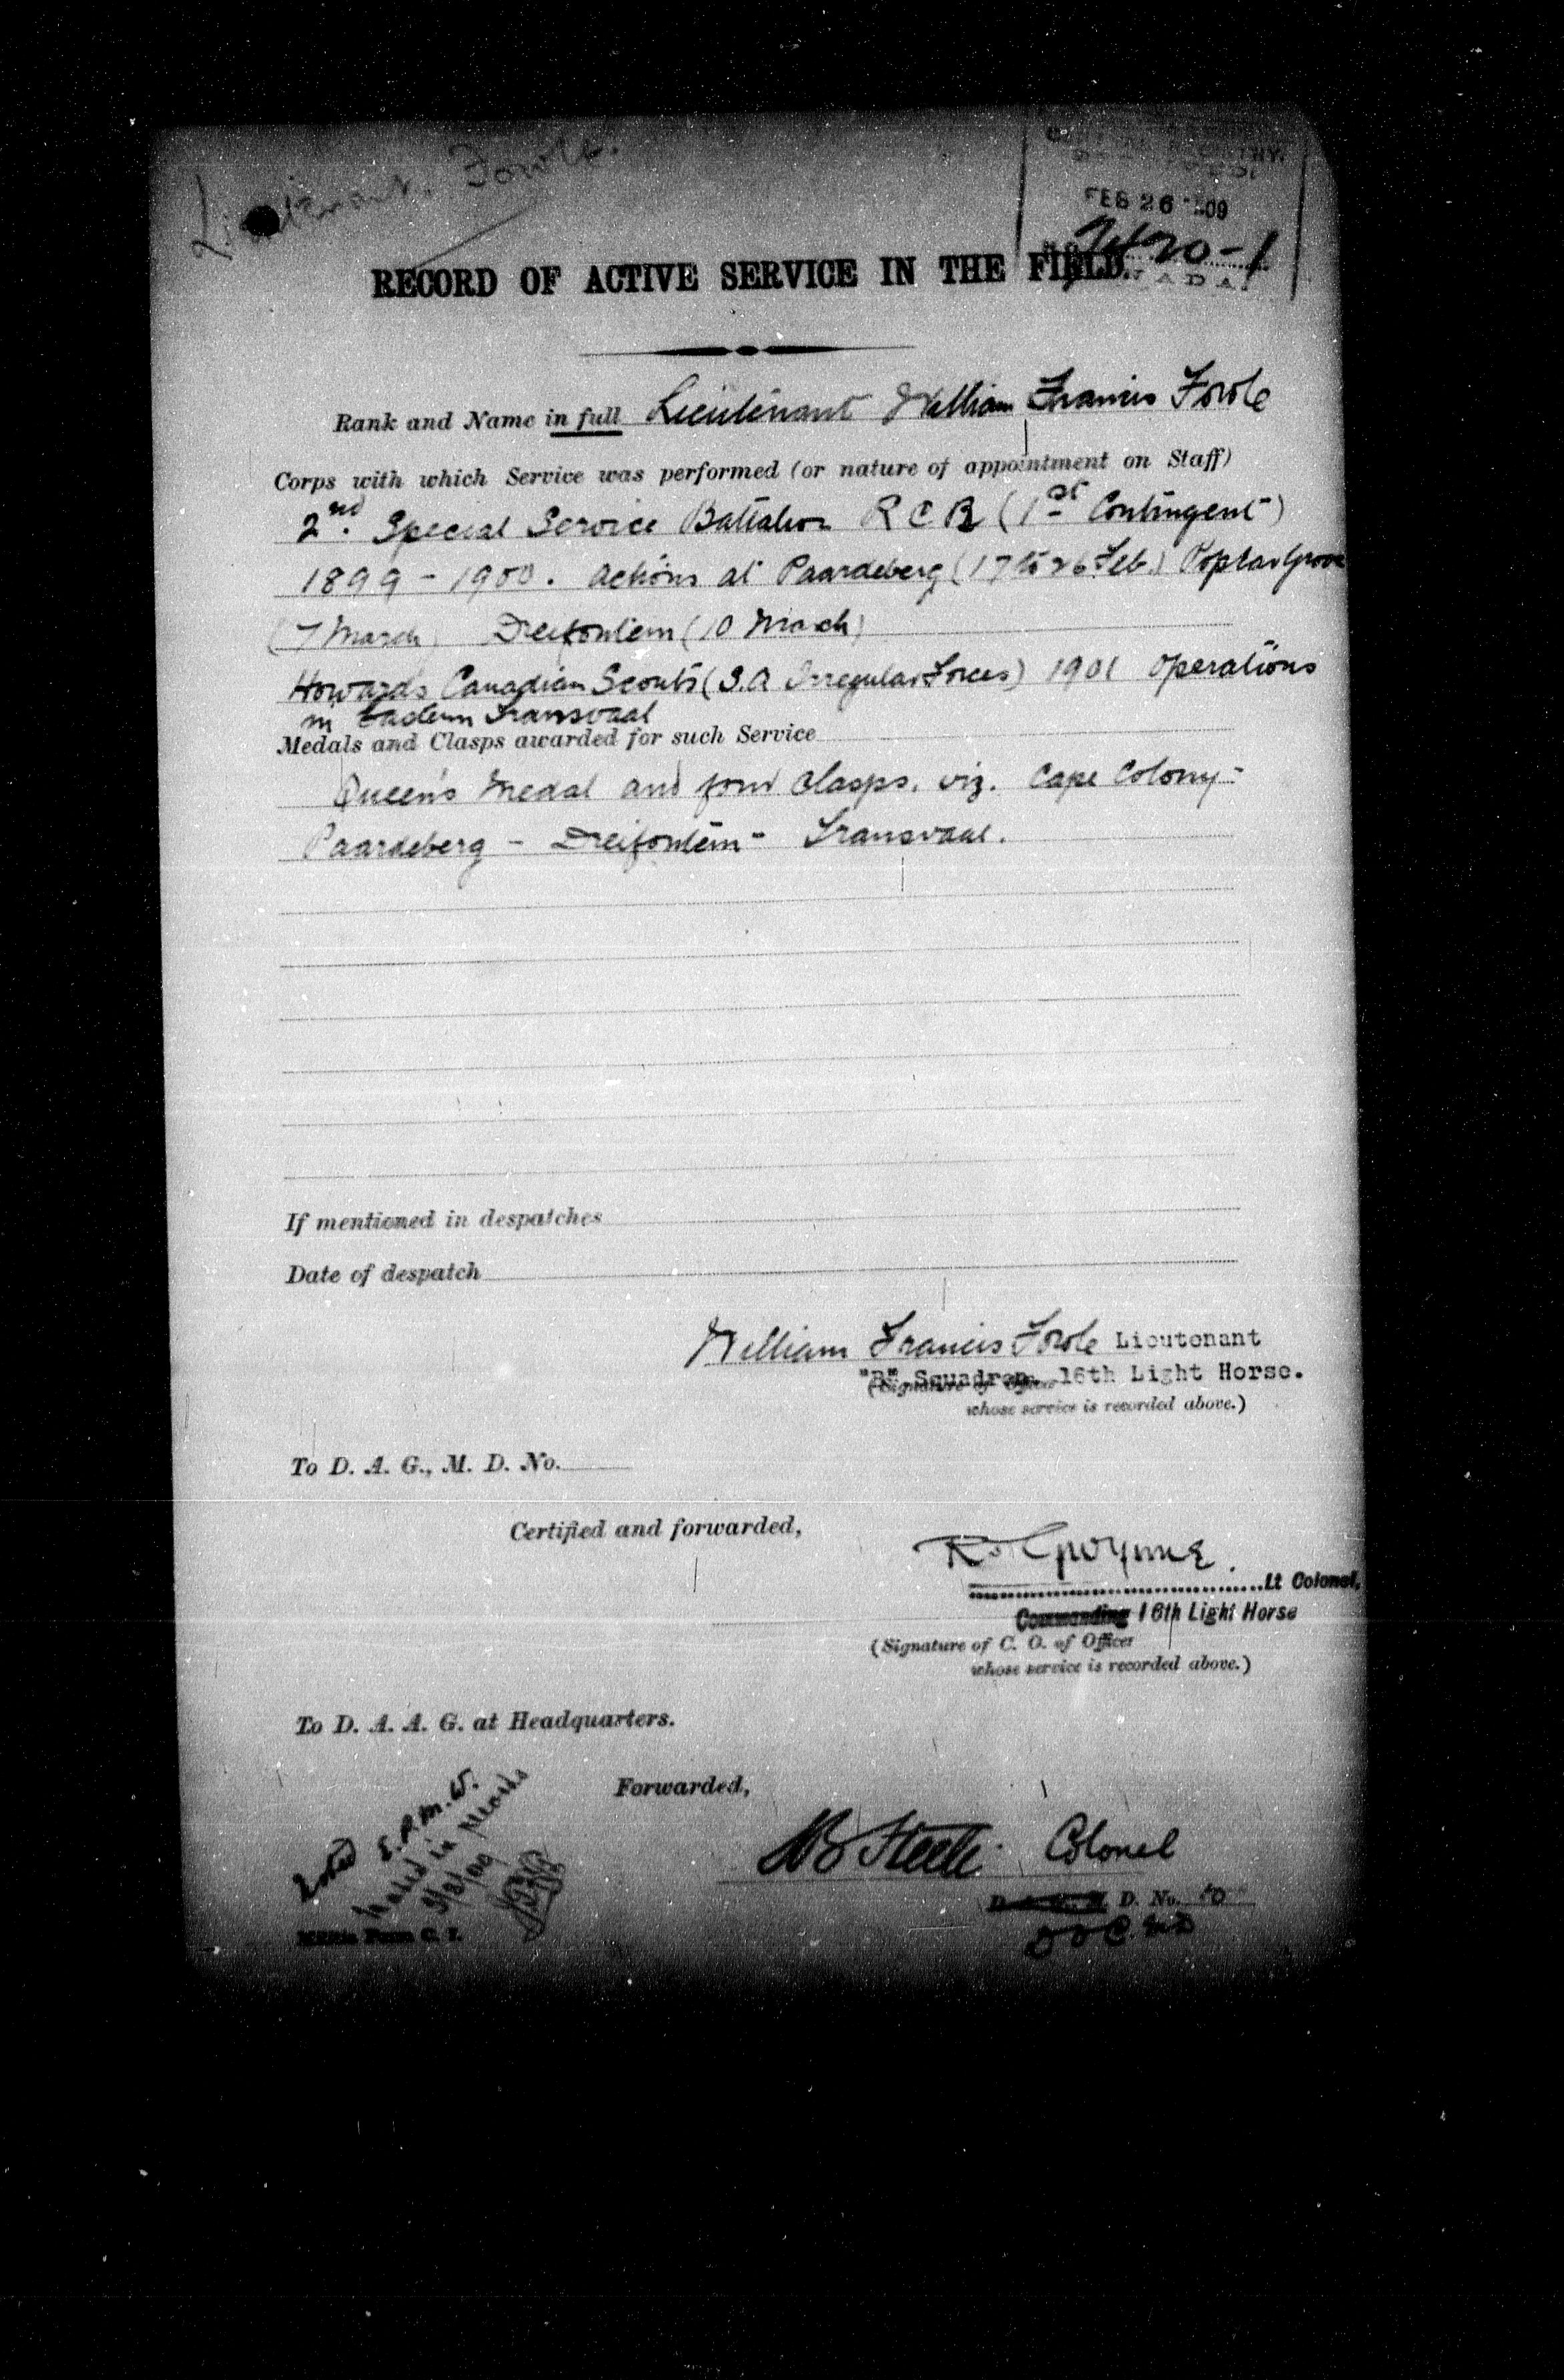 Lieutenant. Fowle.
FEB 26 1909
RECORD OF ACTIVE SERVICE IN THE FIELD.
Rank and Name in full Lieutenant William Francis Fowle
Corps with which Service was performed (or nature of appointment on Staff)
2nd. Special Service Battalion R C R (1st Contingent)
1899 - 1900. Actions at Paardeberg (17 to 26 Feb.) Poplar Grove
(7 March) Dreifontein (10 March)
Howards Canadian Scouts (S.A Irregular Forces) 1901 Operations
in Eastern Transvaal
Medals and Clasps awarded for such Service
Queen's Medal and four Clasps. viz. Cape Colony -
Paardeberg - Dreifontein - Transvaal.
If mentioned in despatches
Date of despatch
William Francis Fowle Lieutenant
"B" Squadron, 16th Light Horse.
(Signature of Officer
whose service is recorded above.)
To D. A. G., M. D. No.
Certified and forwarded,
Lt Colonel,
Commanding 16th Light Horse
(Signature of C. O. of Officer
whose service is recorded above.)
To D. A. A. G. at Headquarters.
Forwarded,
Noted E.P.M.W.
Noted in records
3/3/09
SB Steele Colonel
D. No. 10
Militia Form C. I.